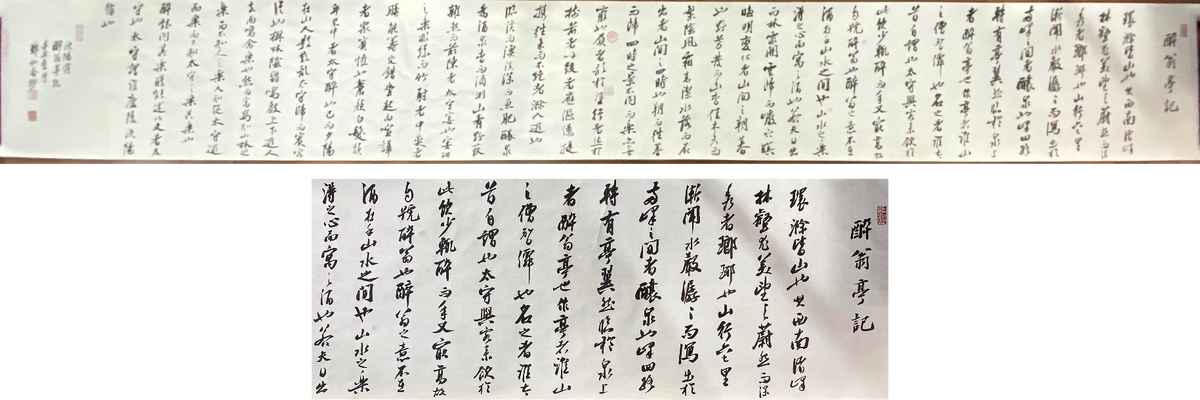 醉翁亭記
環滁皆山也其西南諸峰
林壑尤美望之蔚然而深
秀者瑯琊也山行六七里
漸聞水聲潺潺而瀉出於
兩峰之間者釀泉也峰回路
轉有亭翼然臨於泉上
者醉翁亭也作亭者誰山
之僧智僊也名之者誰太
守自謂也太守與客來飲於
此飲少輒醉而年又最高故
自號醉翁也醉翁之意不在
酒在乎山水之間也山水之樂
得之心而寓之酒也若夫日出
而林霏開雲歸而巖穴暝
晦明變化者山間之朝暮
也野芳發而幽香佳木秀而
繁陰風霜高潔水落而石
出者山間之四時也朝而往暮
而歸四時之景不同而樂亦無
窮也至於負者歌於塗行者休於
樹前者呼後者應傴僂提
攜往來而不絕者滁人遊也
臨溪而漁溪深而魚肥釀泉
為酒泉香而酒洌山肴野蔌
雜然而前陳者太守宴也宴酣
之樂非絲非竹射者中奕者
勝觥籌交錯坐起而諠譁
者衆賓懽也蒼顏白髮頹
乎其中者太守醉也已而夕陽
在山人影散亂太守歸而賓客
從也樹林陰翳鳴聲上下遊人
去而禽鳥樂也然而禽鳥知山林之
樂而不知人之樂人知從太守遊
而樂而不知太守之樂其樂也
醉能同其樂醒能述以文者太
守也太守謂誰廬陵歐陽
脩也
歐陽脩
醉翁亭記
醉翁亭記
環滁皆山也其西南諸峰
林壑尤美望之蔚然而深
秀者瑯琊也山行六七里
漸聞水聲潺潺而瀉出於
兩峰之間者釀泉也峰回路
轉有亭翼然臨於泉上
者醉翁亭也作亭者誰山
之僧智僊也名之者誰太
守自謂也太守與客來飲於
此飲少輒醉而年又最高故
自號醉翁也醉翁之意不在
酒在乎山水之間也山水之樂
得之心而寓之酒也若夫日出